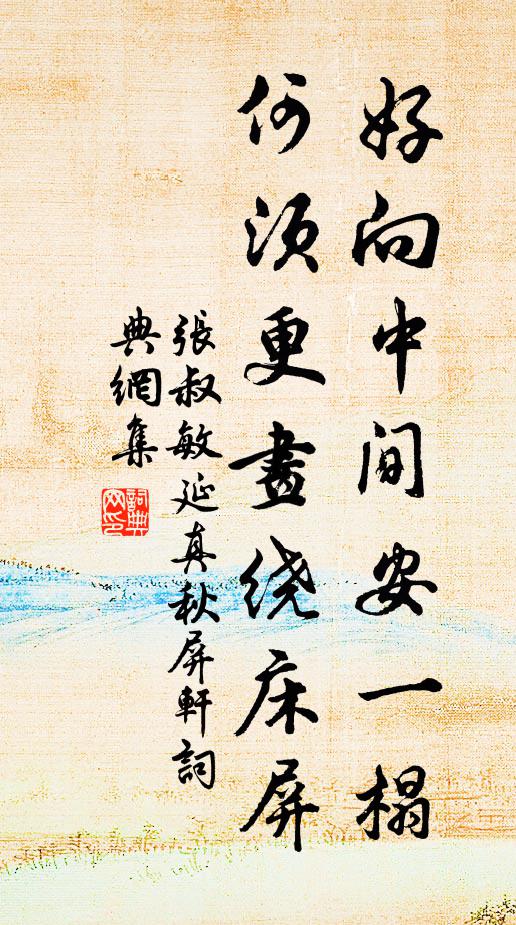 好向中間安一榻
何須更畫绕床屏
張叔敏延真秋屏軒詞
典網集
詞典
网印